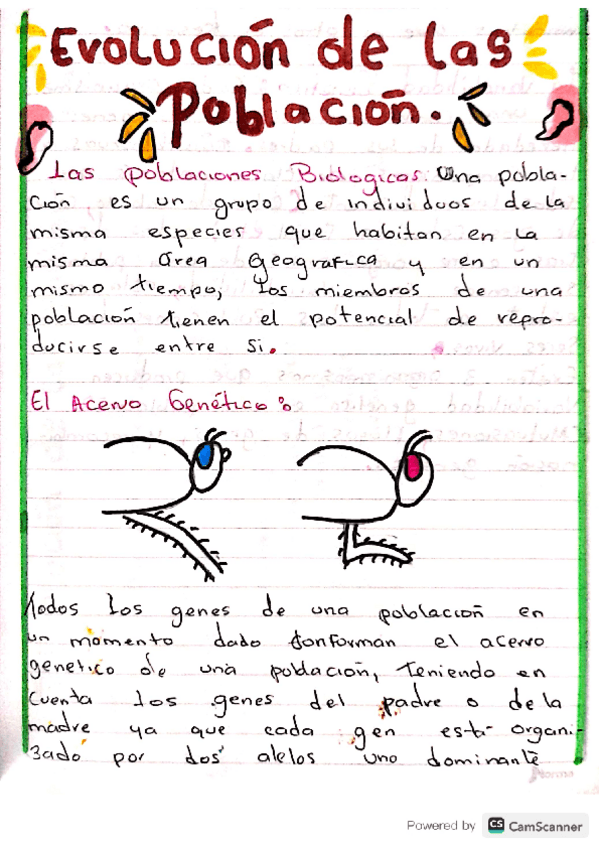 Evolución de las
Población.
Las poblaciones Biologicas: Una pobla-
ción es un grupo de individuos de la
misma especies que habitan en la
misma área geografica y en un
mismo tiempo, los miembros de una
población tienen el potencial de repro-
ducirse entre si.
El Acervo Genético:
Todos los genes de una población en
un momento dado conforman el acervo
genetico de una población, teniendo en
cuenta los genes del padre o de la
madre ya que cada gen está organi-
zado por dos alelos uno dominante
Norma
Powered by CS CamScanner